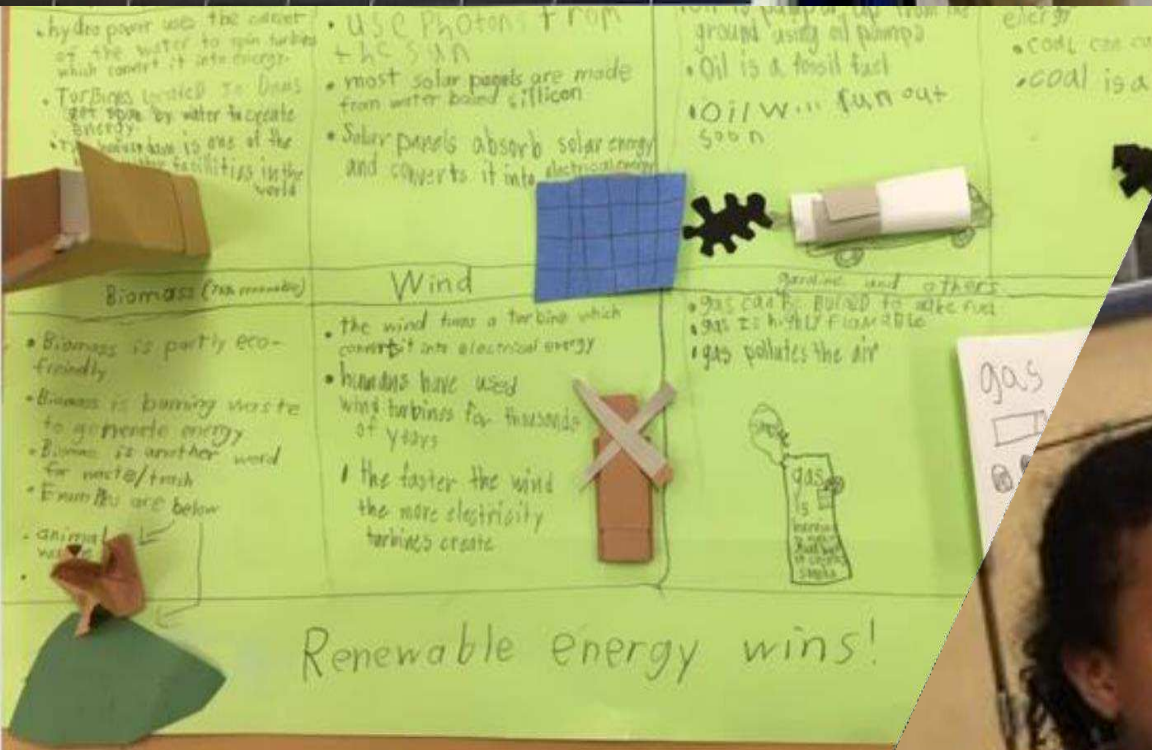 hydro power uses the
of the water to spin turbines
which convert it into energy
Turbines located in Dams
get spun by water to create
energy
dam is one of the
facilities in the
world
use Photons from
the sun
most solar pagels are made
from water baied sillicon
Solar panels absorb solar energy
and converts it into electrical energy
oil is pumped up from the
ground using oil pumps
Oil is a fossil fuel
Oil will run out
soon
energy
coal can
coal is a
Biomass
Wind
and others
Biomass is partly eco-
freindly
Biomass is burning waste
to generate energy
Biomass is another word
for waste/trash
Examples are below
animal
waste
the wind turns a turbine which
convert it into electrical energy
humans have used
wind turbines for thousands
of years
the faster the wind
the more electricity
turbines create
gas can be
to make fuel
gas is highly
gas pollutes the air
gas
is
smoke
gas
Renewable energy wins!